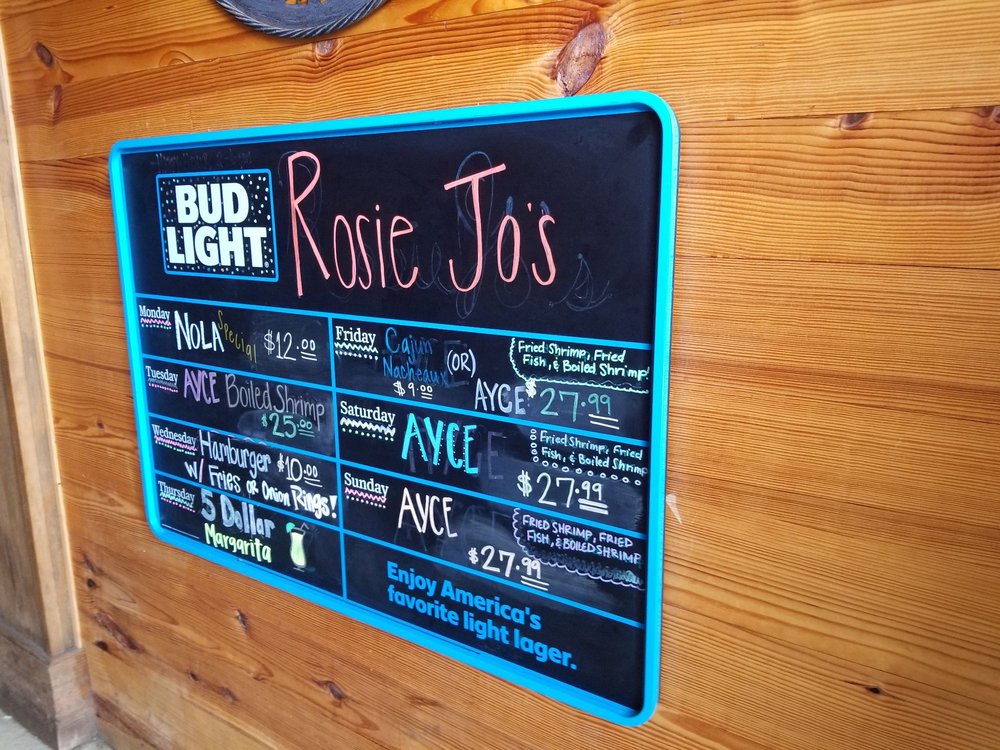 BUD
LIGHT
Rosie Jo's
Monday
NOLA Special $12.00
Tuesday
AYCE Boiled Shrimp
$25.00
Wednesday
Hamburger $10.00
w/ Fries or Onion Rings!
Thursday
5 Dollar
Margarita
Friday
Cajun
Nacheaux
$9.00
(OR)
AYCE $27.99
Fried Shrimp, Fried
Fish, & Boiled Shrimp
Saturday
AYCE
Fried Shrimp, Fried
Fish, & Boiled Shrimp
$27.99
Sunday
AYCE
FRIED SHRIMP, FRIED
FISH, & BOILED SHRIMP
$27.99
Enjoy America's
favorite light lager.